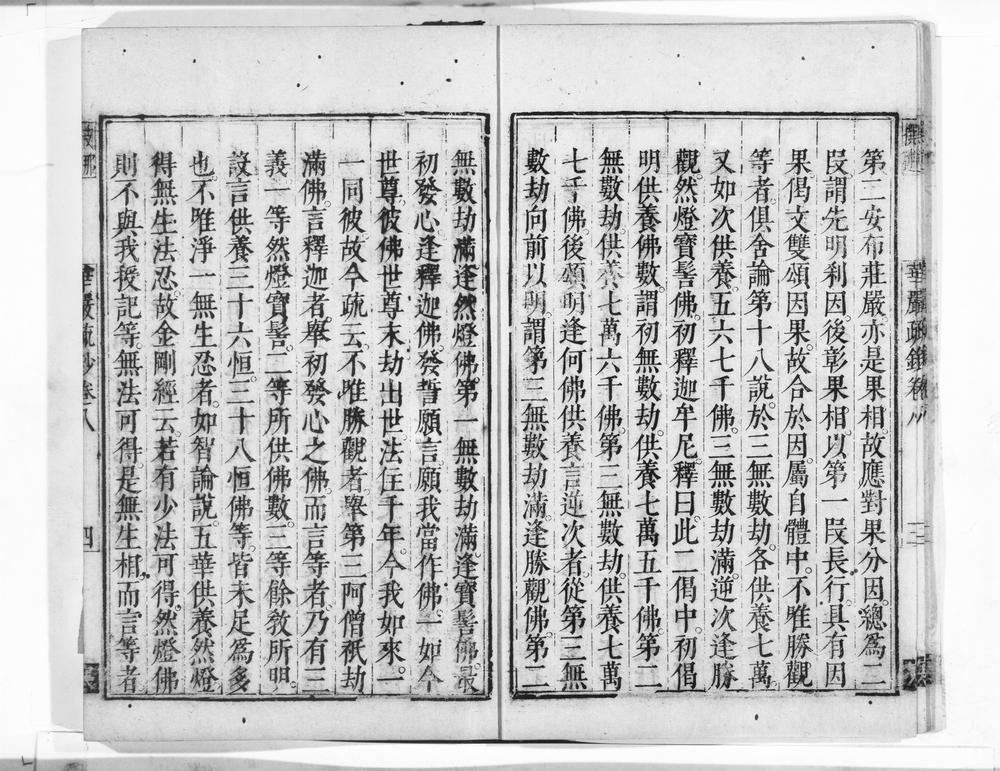 第二安布莊嚴。亦是果相。故應對果分因。總爲二
段。謂先明利因。後彰果相。以第一段長行。具有因
果。偈文雙頌因果。故合於因。屬自體中。不唯勝觀
等者。俱舍論第十八說。於三無數劫。各供養七萬。
又如次供養。五六七千佛。三無數劫滿。逆次逢勝
觀。然燈寶髻佛。初釋迦牟尼。釋曰。此二偈中。初偈
明供養佛數。謂初無數劫。供養七萬五千佛。第二
無數劫。供養七萬六千佛。第三無數劫。供養七萬
七千佛。後頌明逢何佛供養。言逆次者。從第三無
數劫向前以明。謂第三無數劫滿。逢勝觀佛。第二
無數劫滿。逢然燈佛。第一無數劫滿。逢寶髻佛。最
初發心。逢釋迦佛。發誓願言。願我當作佛。一如今
世尊。彼佛世尊末劫出世。法住千年。今我如來。一
一同彼。故今疏云。不唯勝觀者。舉第三阿僧祇劫
滿佛。言釋迦者。舉初發心之佛。而言等者。乃有三
義。一等然燈寶髻。二等所供佛數。三等餘教所明。
設言供養三十六恒。三十八恒佛等。皆未足爲多
也。不唯淨一無生忍者。如智論說。五華供養然燈。
得無生法忍。故金剛經云。若有少法可得。然燈佛
則不與我授記等。無法可得。是無生相。而言等者
華嚴疏鈔卷八
三
華嚴疏鈔卷八
四